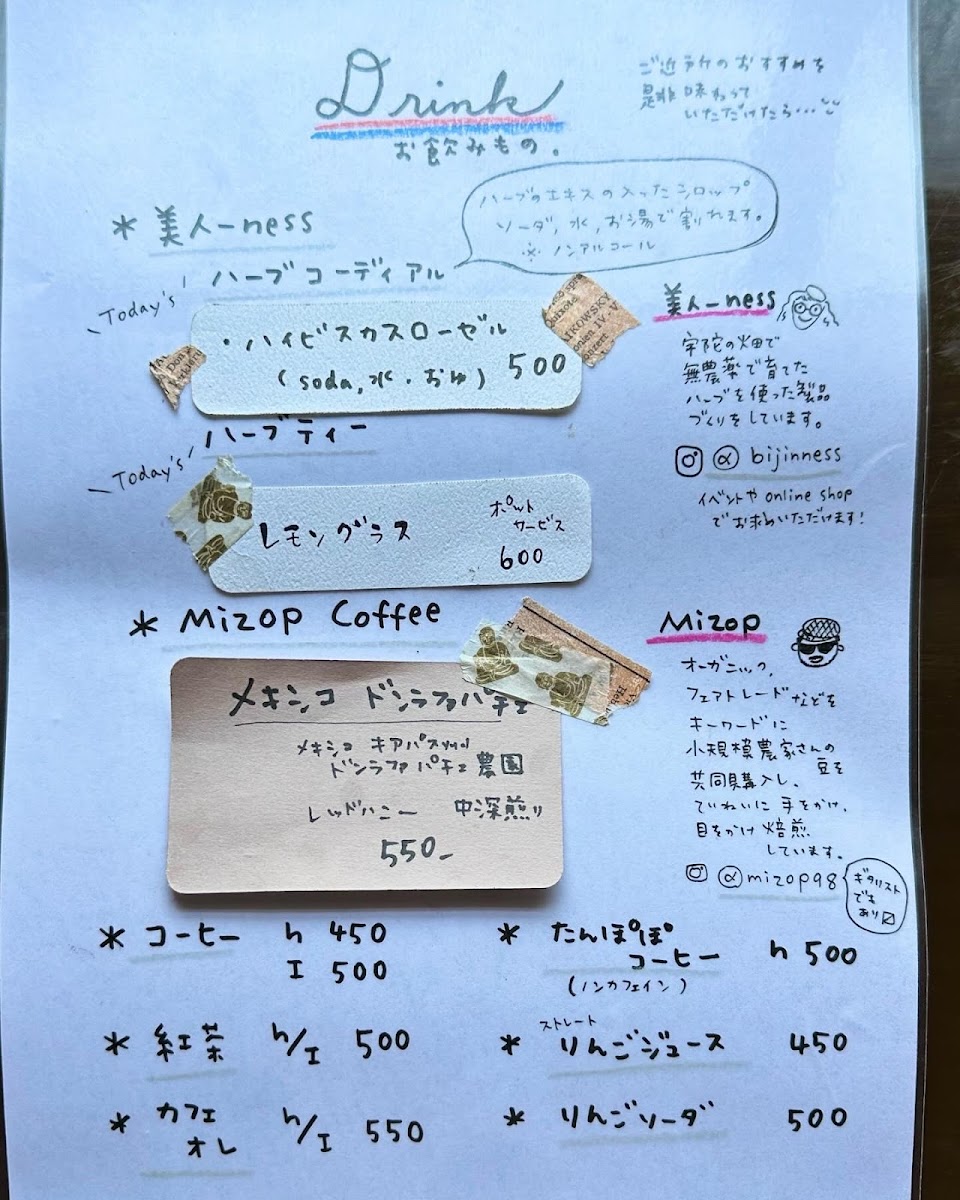 Drink
お飲みもの。
ご近所のおすすめを
是非味わって
いただけたら…
* 美人ーness
ハーブのエキスの入ったシロップ
ソーダ, 水, お湯で割れます。
※ ノンアルコール
Today's
ハーブコーディアル
・ハイビスカスローゼル
(soda, 水・おゆ) 500
Today's
ハーブティー
レモングラス
ポット
サービス
600
美人ーness
宇陀の畑で
無農薬で育てた
ハーブを使った製品
づくりをしています。
@ bijinness
イベントや online shop
でお求めいただけます!
* Mizop Coffee
メキシコ ドンラファパチェ
メキシコ キアパス州
ドンラファ パチェ農園
レッドハニー 中深煎り
550-
Mizop
オーガニック,
フェアトレードなどを
キーワードに
小規模農家さんの
豆を
共同購入し、
ていねいに 手をかけ,
目をかけ 焙煎
しています。
@mizop98
ギタリスト
でも
あり〼
* コーヒー h 450
I 500
* たんぽぽ
コーヒー h 500
(ノンカフェイン)
* 紅茶 h/I 500
* ストレート
りんごジュース 450
* カフェ
オレ h/I 550
* りんごソーダ 500